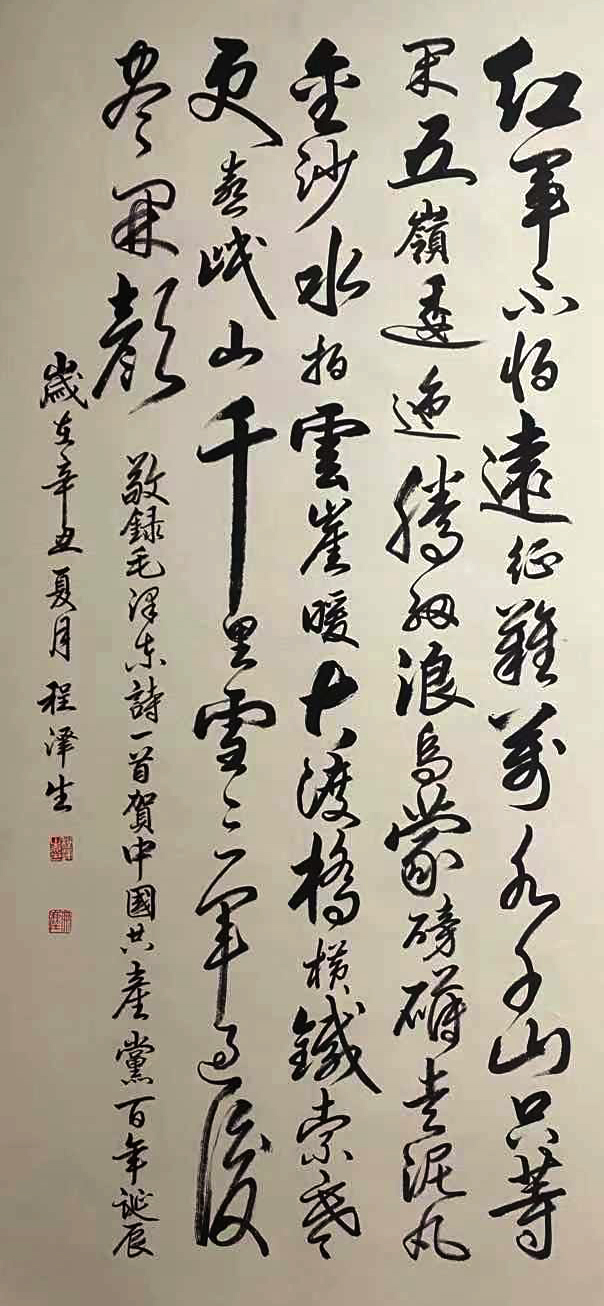 红軍不怕遠征難萬水千山只等
闲五嶺逶迤騰細浪烏蒙磅礴走泥丸
金沙水拍雲崖暖大渡橋横鐵索寒
更喜岷山千里雪三軍過後
尽開顏
敬録毛澤东詩一首賀中國共產黨百年誕辰
歲在辛丑夏月程泽生